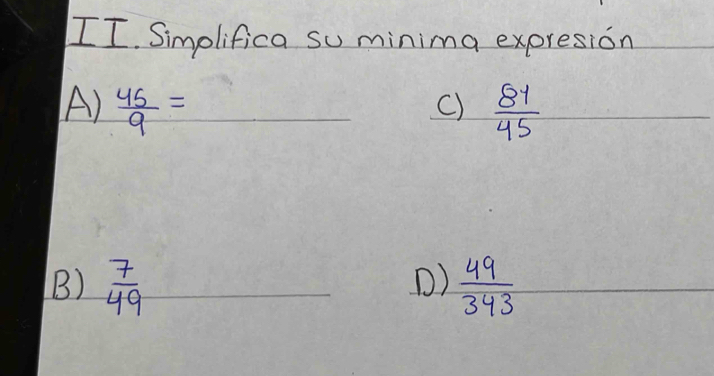 II. Simplifica su minima expresión
A) 45/9 =
C) 81/45
B) 7/49
D) 49/343